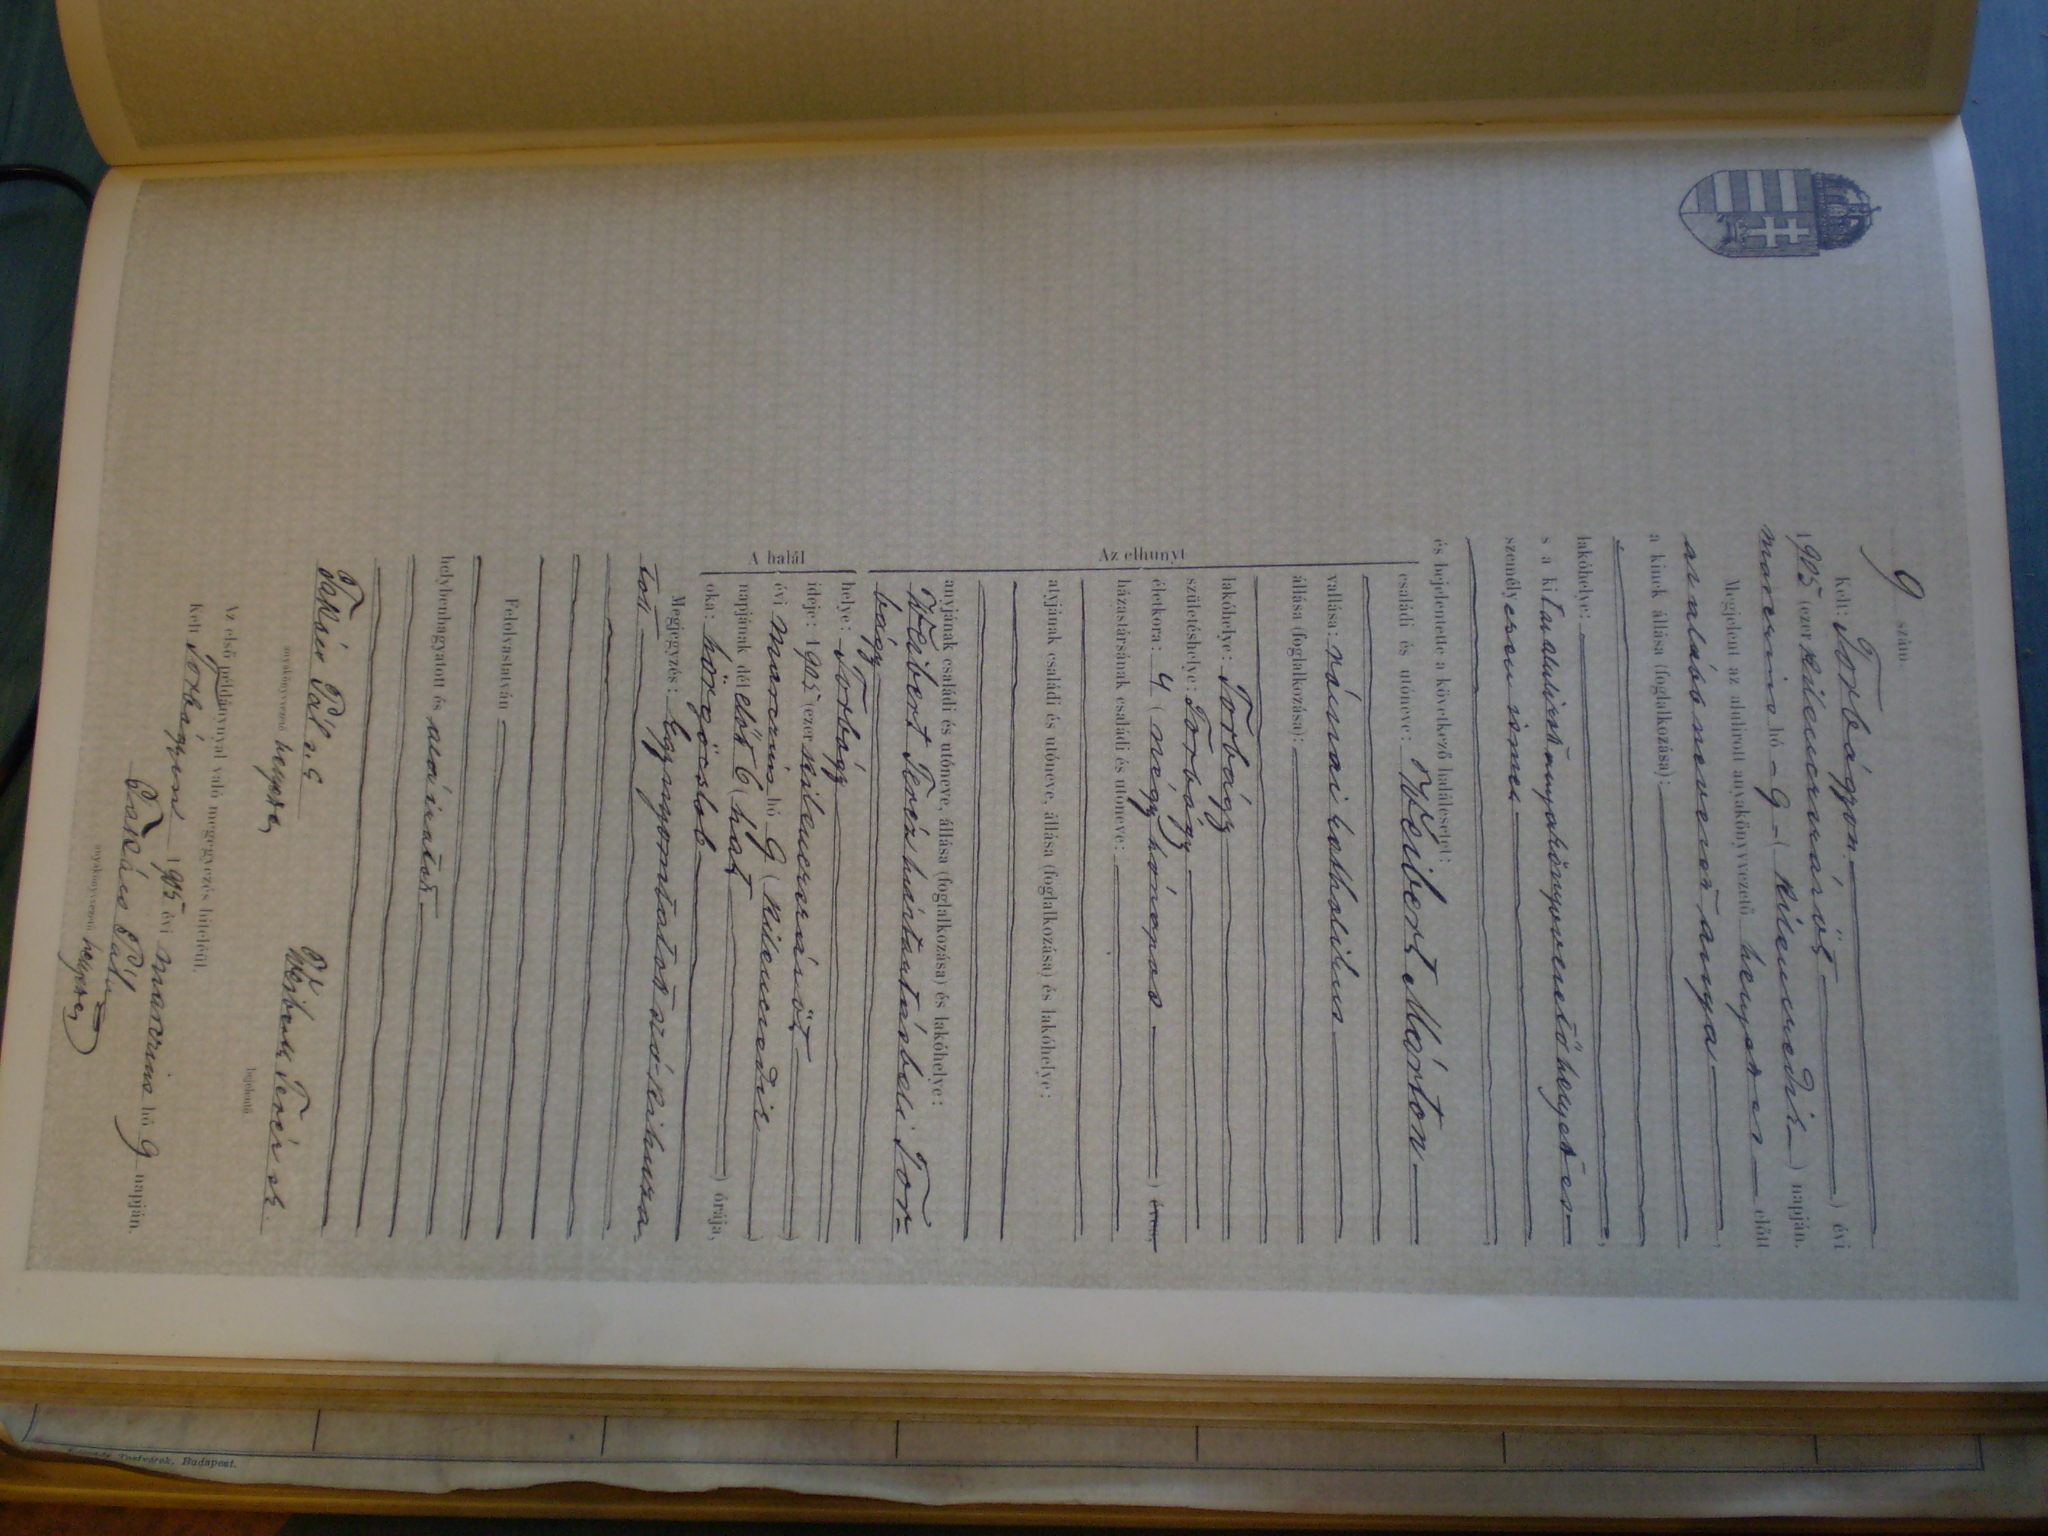 9 szám.
Kelt: Torbágyon.
1905 (ezer kilencszázöt) évi
marczius hó 9 (kilenczedik) napján.
Megjelent az alulirott anyakönyvvezető helyettes előtt
az alább nevezett anya
a kinek állása (foglalkozása):
lakóhelye:
s a kit az alulirott anyakönyvvezető helyettes
személyesen ismer
és bejelentette a következő halálesetet:
Az elhunyt
családi és utóneve: Weibert Márton
vallása: római katholikus
állása (foglalkozása):
lakóhelye: Torbágy
születéshelye: Torbágy
életkora: 4 (négy hónapos) éves,
házastársának családi és utóneve:
atyjának családi és utóneve, állása (foglalkozása) és lakóhelye:
anyjának családi és utóneve, állása (foglalkozása) és lakóhelye:
Weibert Teréz háztartásbeli Tor-
bágy
A halál
helye: Torbágy
ideje: 1905 (ezer kilencszázöt)
évi marczius hó 9 (kilenczedik)
napjának délelőtt 6 (hat) órája,
oka: hörgőcslob
Megjegyzés: Egy nyomtatott szó kihuza-
tott
Felolvastatván
helybenhagyatott és aláíratott.
Takács Pál s.k.
anyakönyvvezető helyettes
Weibert Teréz sk.
bejelentő.
Az első példánynyal való megegyezés hiteléül.
Kelt Torbágyon 1905 évi marczius hó 9 napján.
Takács Pál
anyakönyvvezető helyettes
Testvérek, Budapest.